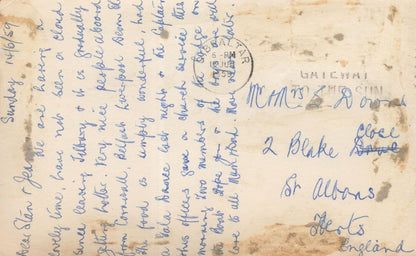 Sunday 14/6/59
Dear Stan &
We are having a
lovely time, have not seen a cloud
since leaving Tilbury & it is gradually
getting hotter. Very nice people aboard
from Cornwall, Belfast Liverpool Devon &
The food is simply wonderful, had
a Gala Dinner last night & the
officers gave a church service this
morning. Two members of the
the Boat. Hope you & the
love to all Main Road. More later.
GIBRALTAR
6-PM
JU
1959
GATEWAY
SUN
Mr & Mrs S Downs
Close
2 Blake Drive
St Albans
Herts
England